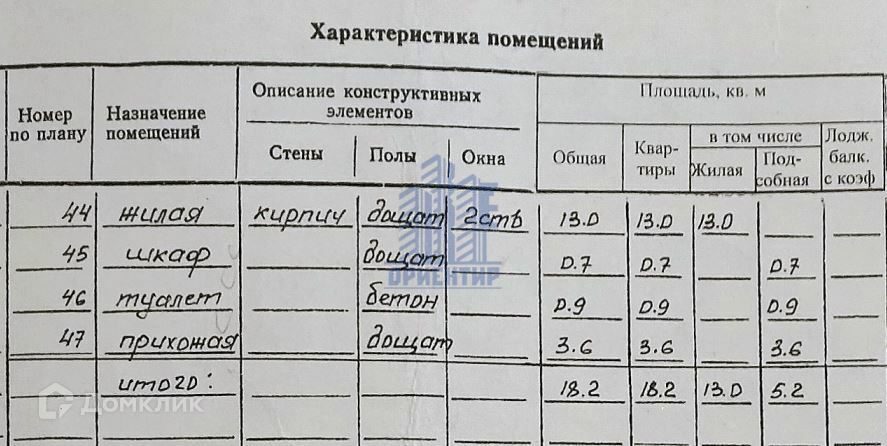 Характеристика помещений
Номер по плану
Назначение помещений
Описание конструктивных элементов
Стены
Полы
Окна
Площадь, кв. м
Общая
Квар-
тиры
в том числе
Жилая
Под-
собная
Лодж.
балк.
с коэф
44 жилая кирпич дощат 2ств 13.0 13.0 13.0
45 шкаф дощат 0.7 0.7 0.7
46 туалет бетон 0.9 0.9 0.9
47 прихожая дощат 3.6 3.6 3.6
итого: 18.2 18.2 13.0 5.2
ОРИЕНТИР
Домклик